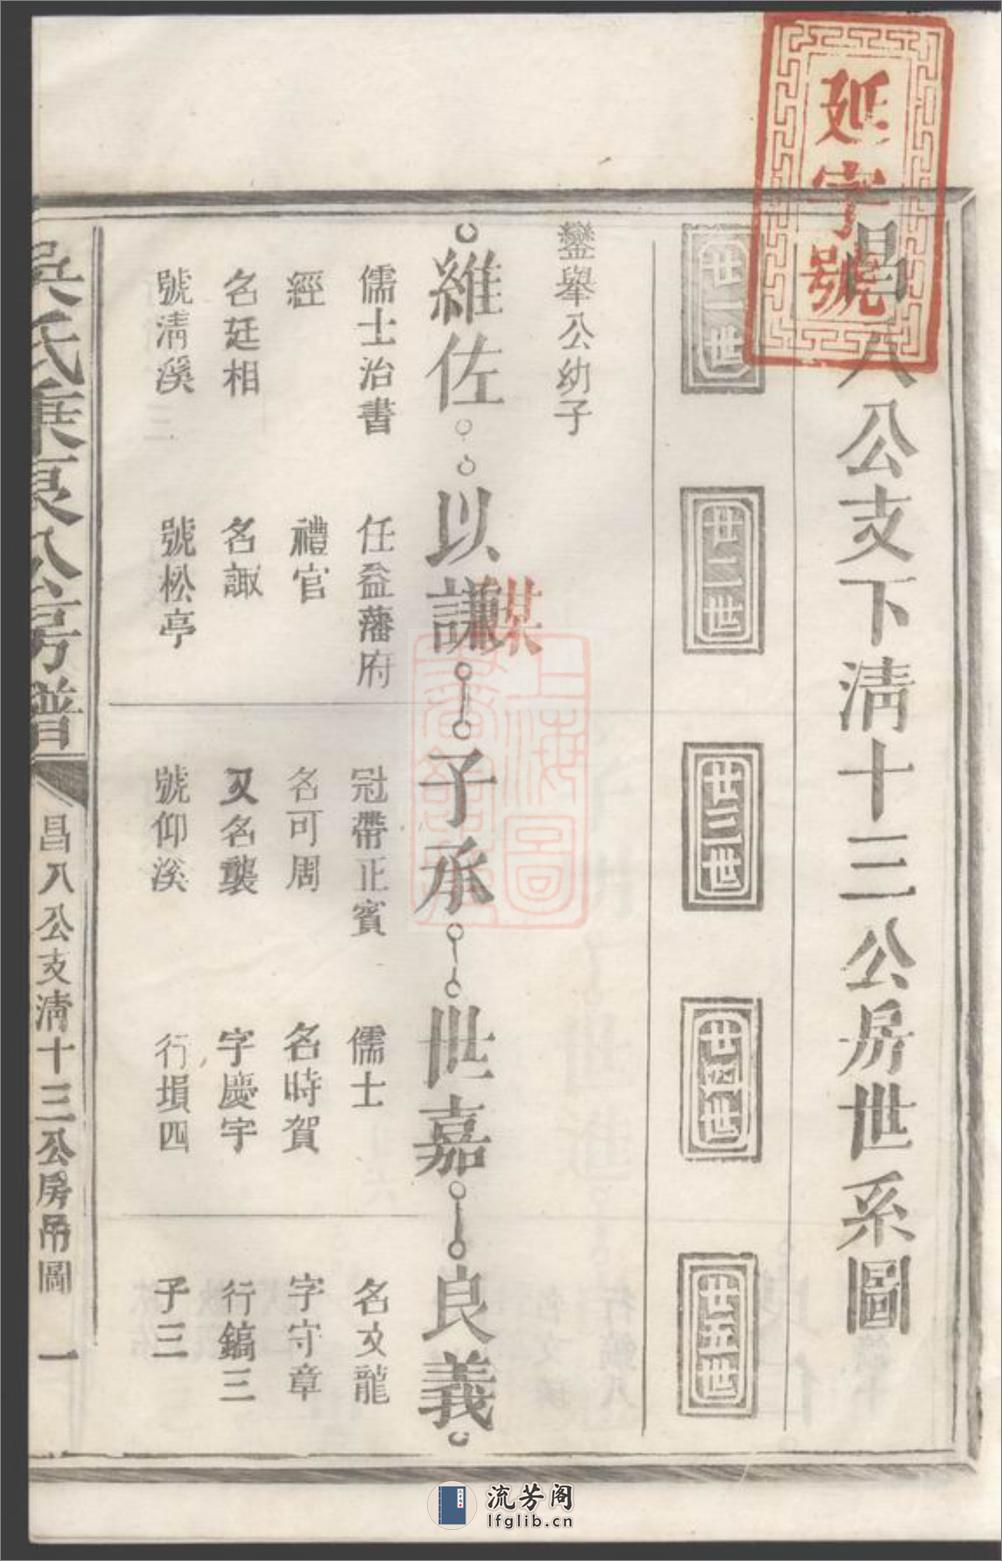 延字號
昌八公支下清十三公房世系圖
廿一世
廿二世
廿三世
廿四世
廿五世
鑾舉公幼子
維佐
以謙
謀
子承
世嘉
良義
儒士治書
經
名廷相
號清溪
任益藩府
禮官
名諏
號松亭
冠帶正賓
名可周
又名襲
號仰溪
儒士
名時賀
字慶宇
行塤四
名文龍
字守章
行鎬三
子三
吳氏秉良公房譜
昌八公支清十三公房吊圖
一
上海圖
流芳阁
lfglib.cn